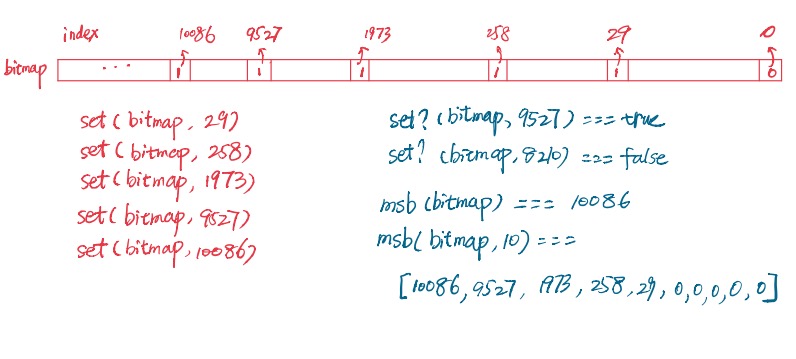 index 10086 9527 1973 258 29 0
bitmap ... 1 1 1 1 1 0
set(bitmap, 29)
set(bitmap, 258)
set(bitmap, 1973)
set(bitmap, 9527)
set(bitmap, 10086)
set?(bitmap, 9527) === true
set? (bitmap, 8210) === false
msb (bitmap) === 10086
msb(bitmap, 10) ===
[10086, 9527, 1973, 258, 29, 0, 0, 0, 0, 0]